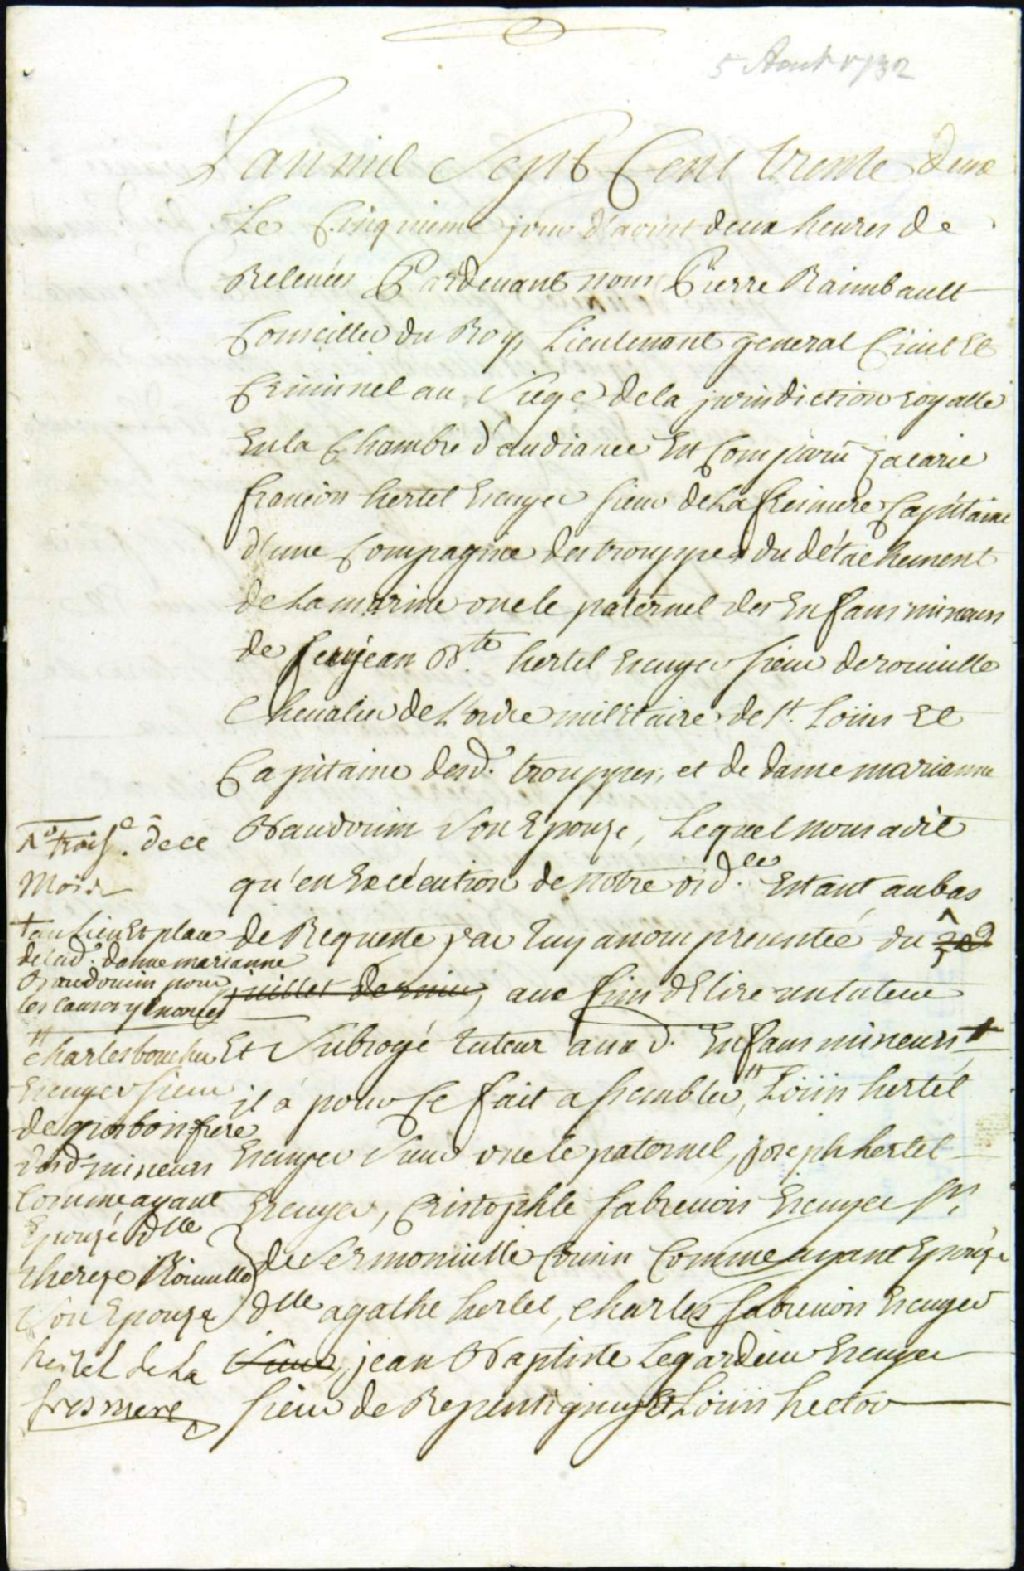 5 Aout 1732
L'an mil Sept Cent trente deux
Le Cinquieme jour d'aoust deux heures de
Relevées Pardevant nous Pierre Raimbault
Conseiller du Roy, Lieutenant general Civil Et
Criminel au Siege de la jurisdiction royalle
En la Chambre d'audiance Est Comparu Zacarie
francois hertel Escuyer sieur de La fresniere Capitaine
d'une Compagnie des trouppes du détachement
de La marine oncle paternel des Enfans mineurs
de feu jean Bte hertel Escuyer sieur de rouville
Chevalier de L'ordre militaire de St. Loüis Et
Capitaine desd. trouppes, et de dame marianne
Baudouin Son Epouze, Lequel nous a dit
qu'en Execution de notre ord.ce Estant au bas
de Requeste par Luy a nous presentée du 29
juillet dernier, aux fins d'Elire un tuteur
Et Subrogé tuteur aux d. Enfans mineurs
il a pour Ce fait assembler, Loüis hertel
Escuyer Sieur oncle paternel, joseph hertel
Escuyer, Cristophle Sabrevois Escuyer Sr.
de Sermonville Cousin Comme ayant Epouze
dlle agathe hertel, Charles Sabrevois Escuyer
Sieur, jean Baptiste Legardeur Escuyer
sieur de Repentigny Et Loüis hector
de ce
Mois
+ au Lieu Et place
de lad. dame marianne
Baudouin pour
les causes y Enoncées
" Charles boucher
Escuyer sieur
de grosbois frere
desd mineurs
Comme ayant
Epouzé dlle
therese Rouville
Son Epouze
hertel de La
fresniere